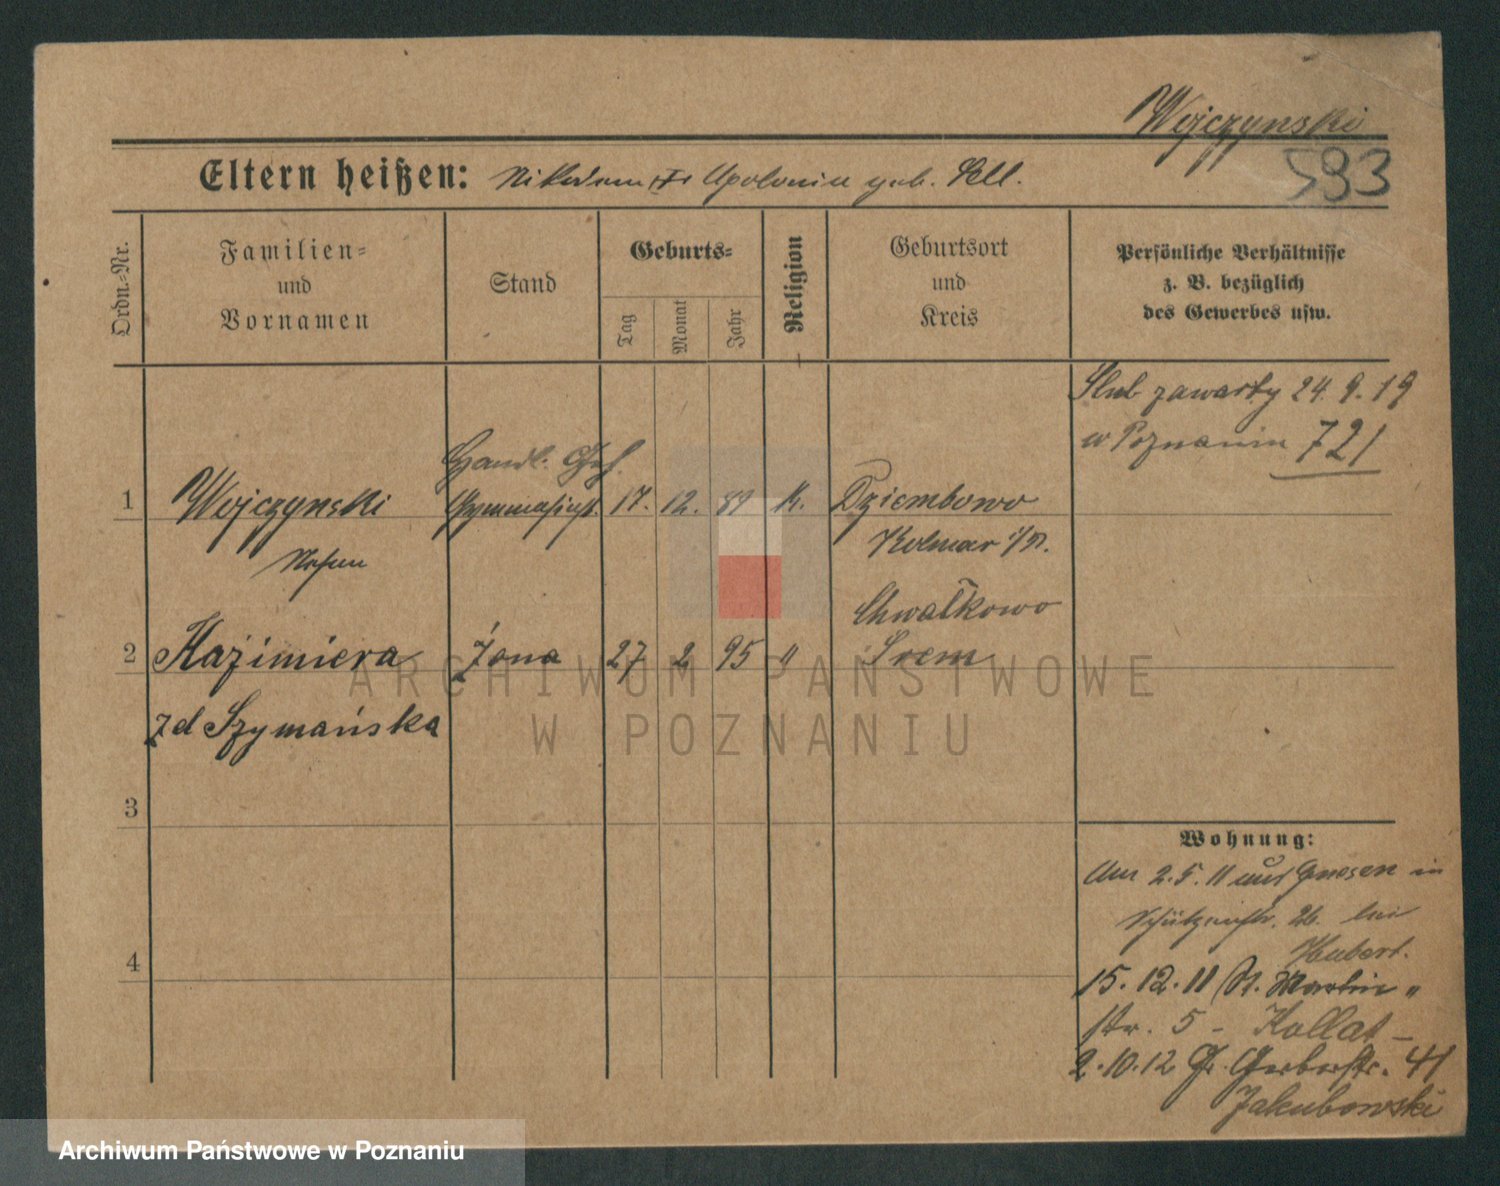 Wojczynski
593
Eltern heißen: Nikodem Apolonia geb. Sell.
Ordn.-Nr.
Familien- und Vornamen
Stand
Geburts-
Tag
Monat
Jahr
Religion
Geburtsort und Kreis
Persönliche Verhältnisse z. B. bezüglich des Gewerbes usw.
Ślub zawarty 24. 9. 19
w Poznaniu 721
Handl. Geh.
1 Wojczynski Gymnasiast. 17. 12. 89 k. Dziembowo
Kolmar i/P.
Chwałkowo
2 Kazimiera żona 27 2 95 " Śrem
zd Szymańska
3
4
Wohnung:
Am 2.5.11 aus Gnesen in
Schützenstr. 26. bei
Hubert.
15.12.11 St. Martin-
str. 5 - Kollat -
2.10.12 Gr. Gerberstr. 41
Jakubowski
ARCHIWUM PAŃSTWOWE
W POZNANIU
Archiwum Państwowe w Poznaniu